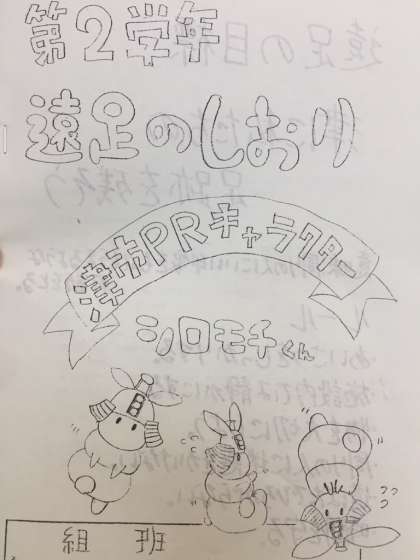 第2学年
遠足のしおり
津市PRキャラクター
シロモチくん
組 班